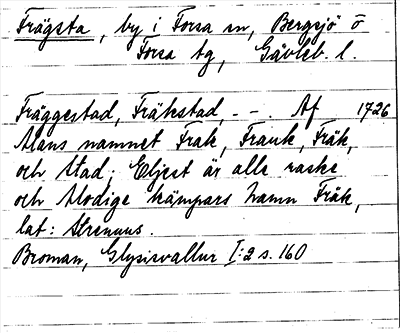 Frägsta, by i Forsa sn, Bergsjö o
Forsa tg, Gävleb. l.
Fräggestad, Fräkstad, - - . Af 1726
Mans namnet Frak, Frank, Fräk,
och stad; Eljest är alle raske
och Modige kämpars namn Fräk,
lat: Strenuus.
Broman, Glysisvallur I:2 s. 160